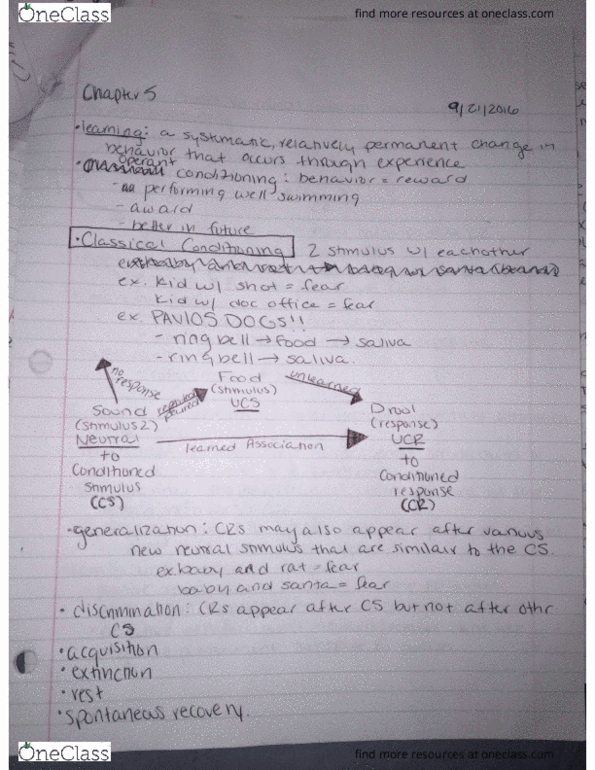 OneClass
find more resources at oneclass.com
Chapter 5
9/21/2016
•learning: a systematic, relatively permanent change in
behavior that occurs through experience
• operant conditioning: behavior = reward
- performing well swimming
- award
- better in future
•Classical Conditioning 2 stimulus w/ eachother
ex. kid w/ shot = fear
kid w/ doc office = fear
ex. PAVLOS DOGS!!
- ring bell → food → saliva
- ring bell → saliva.
no response
Food
(stimulus)
UCS
unlearned
Sound
(stimulus 2)
Neutral
to
Conditioned
Stimulus
(CS)
paired
learned Association
Drool
(response)
UCR
to
Conditioned
response
(CR)
•generalization: CRs may also appear after various
new neutral stimulus that are similair to the CS.
ex. baby and rat = fear
baby and santa = fear
• discrimination: CRs appear after CS but not after othr
CS
•acquisition
•extinction
•rest
•spontaneus recovery.
OneClass
find more resources at oneclass.com